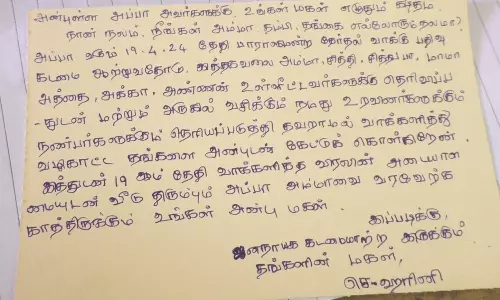 அன்புள்ள அப்பா அவர்களுக்கு உங்கள் மகள் எழுதும் கடிதம்.
நான் நலம். நீங்கள் அம்மா தம்பி, தங்கை எல்லோரும் நலமா?
அப்பா வரும் 19.4.24 தேதி பாராளுமன்ற தேர்தல் வாக்கு பதிவு
கடமை ஆற்றுவதோடு, இத்தகவலை அம்மா, சித்தி, சித்தப்பா, மாமா
அத்தை, அக்கா, அண்ணன் உள்ளிட்டவர்களுக்கு தெரிவிப்ப
-துடன் மற்றும் அருகில் வசிக்கும் நமது உறவினர்களுக்கும்
நண்பர்களுக்கும் தெரியப்படுத்தி தவறாமல் வாக்களித்து
வழிகாட்ட தங்களை அன்புடன் கேட்டுக் கொள்கிறேன்.
இத்துடன் 19 ஆம் தேதி வாக்களித்த விரலின் அடையாள
மையுடன் வீடு திரும்பும் அப்பா அம்மாவை வரவேற்க
காத்திருக்கும் உங்கள் அன்பு மகள்.
இப்படிக்கு,
ஜனநாயக கடமையாற்ற இருக்கும்
தங்களின் மகள்,
செ-ஹரினி